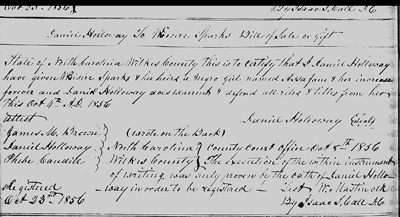 Oct 23rd 1856 By Isaac S. Call DC
Daniel Holloway To Desire Sparks Bill of Sale or Gift
State of North Carolina Wilkes County this is to certify that I Daniel Holloway
have given Desire Sparks & his heirs a Negro girl named & her increase
forever and Daniel Holloway does warrant & defend all rites & titles from her
This Oct 4th A.D. 1856
attest Daniel Holloway (Seal)
James M. Brown (wrote on the Back)
Daniel Holloway North Carolina County court office Oct 8th 1856
Phebe Caudile Wilkes County The execution of the within instrument
of writing was duly proven by the oath of Daniel Hollo-
Registered way in order to be registered – Test W. Mastin clk
Oct 23rd 1856 By Isaac S. Call DC